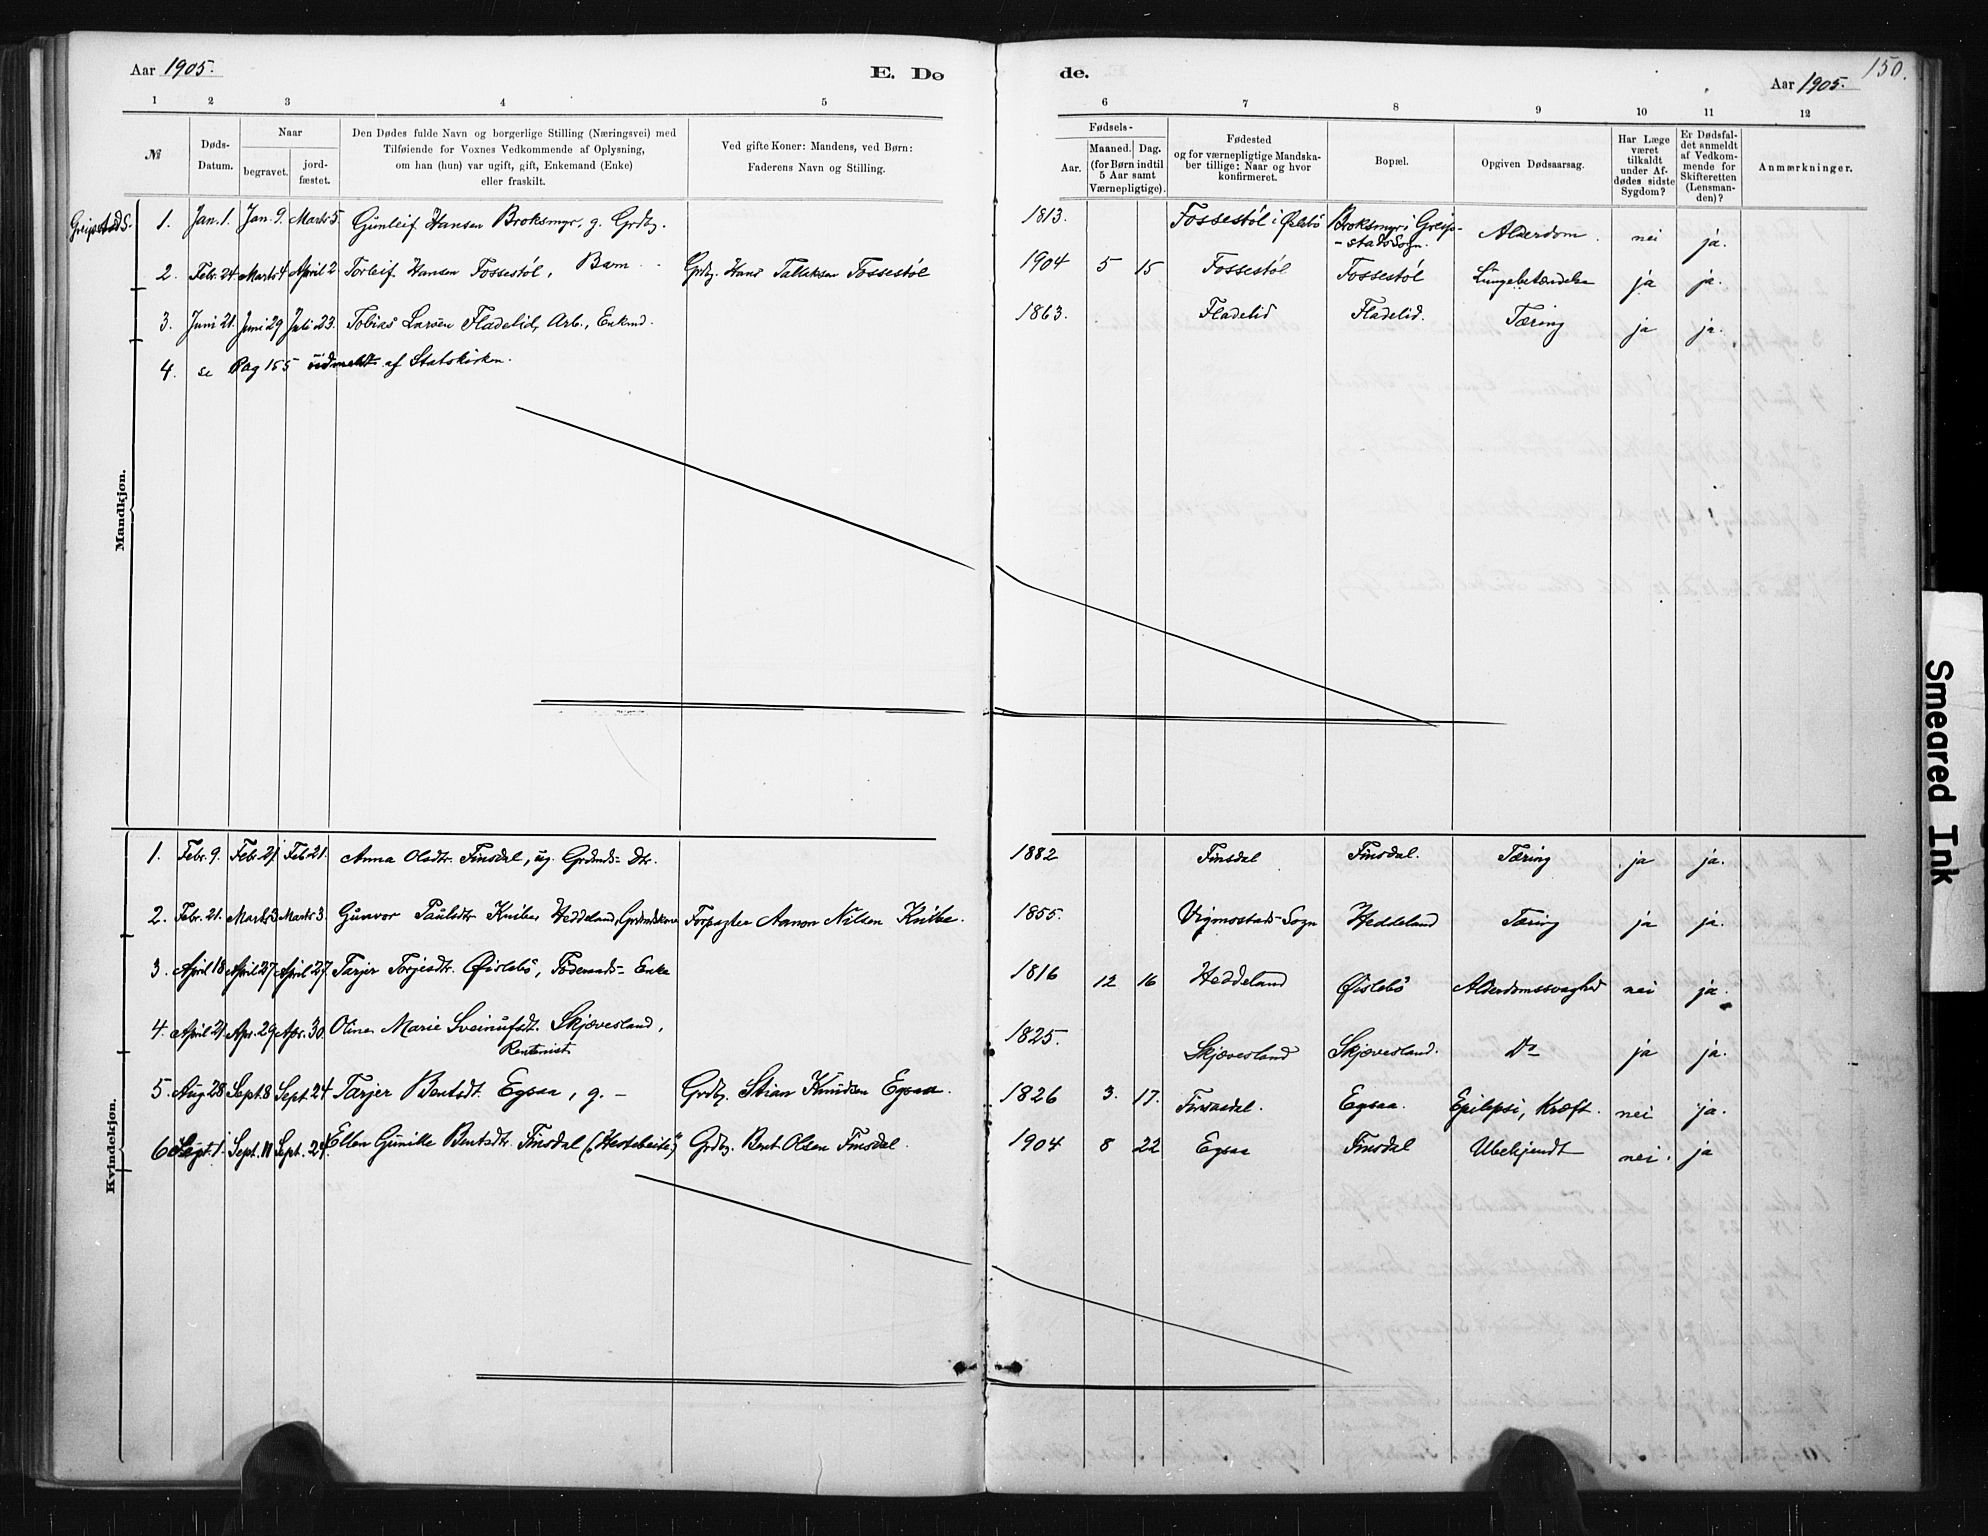 Aar 1905. E. Dø
de. Aar 1905. 150.
1 2 3 4 5
6 7 8 9 10 11 12
№ Døds-Datum. Naar begravet. jord-fæstet.
Den Dødes fulde Navn og borgerlige Stilling (Næringsvei) med
Tilføiende for Voxnes Vedkommende af Oplysning,
om han (hun) var ugift, gift, Enkemand (Enke)
eller fraskilt.
Ved gifte Koner: Mandens, ved Børn:
Faderens Navn og Stilling.
Fødsels-
Aar. Maaned. Dag.
(for Børn indtil
5 Aar samt
Værnepligtige).
Fødested
og for værnepligtige Mandska-
ber tillige: Naar og hvor
konfirmeret.
Bopæl.
Opgiven Dødsaarsag.
Har Læge
været
tilkaldt
under Af-
dødes sidste
Sygdom?
Er Dødsfal-
det anmeldt
af Vedkom-
mende for
Skifteretten
(Lensman-
den)?
Anmærkninger.
Greipstad S.
Mandkjøn.
1. Jan. 1. Jan. 9. Marts 5. Gunleif Hansen Broksmyr, g. Grdbr. 1813. Fossestøl i Øslebø Broksmyr i Greip-stads Sogn. Alderdom. nei ja.
2. Febr. 24. Marts 4 April 2 Torleif Hansen Fossestøl, Barn. Grdbr. Hans Tallaksen Fossestøl 1904 5 15 Fossestøl Fossestøl Lungebetændelse ja ja.
3. Juni 21. Juni 29 Juli 23. Tobias Larsen Fladelid, Arb., Enkmd. 1863. Fladelid Fladelid. Tæring ja ja.
4. se Pag 155 udmeldt af Statskirken.
Kvindekjøn.
1. Febr. 9. Febr. 21. Feb 21. Anna Olsdtr. Finsdal, ug. Grdmds- Dtr. 1882 Finsdal Finsdal. Tæring ja ja.
2. Febr. 21. Marts 3 Marts 3. Gunvor Paulsdtr Knibe, Heddeland, Grdmdskone Forpagter Aanon Nilsen Knibe. 1855. Vigmostads-Sogn Heddeland Tæring ja ja.
3. April 18 April 27 April 27. Tarjer Torjesdtr. Øislebø, Føderaads- Enke 1816 12 16 Heddeland Øislebø Alderdomssvaghed nei ja.
4. April 21. Apr. 29 Apr. 30. Oline Marie Sveinufsdt. Skjævesland,
Rentenist 1825. Skjævesland Skjævesland. Do ja ja.
5. Aug. 28 Sept. 8 Sept. 24 Tarjer Bentsdt. Egsaa, g. – Grdbr. Stian Knudsen Egsaa. 1826 3. 17. Finsaadal. Egsaa. Epilepsi, Kræft. nei ja.
6 Sept. 1. Sept. 11 Sept. 24. Ellen Gunille Bentsdtr. Finsdal Grdbr. Bent Olsen Finsdal. 1904 8 22 Egsaa Finsdal Ubekjendt nei. ja
Smeared Ink